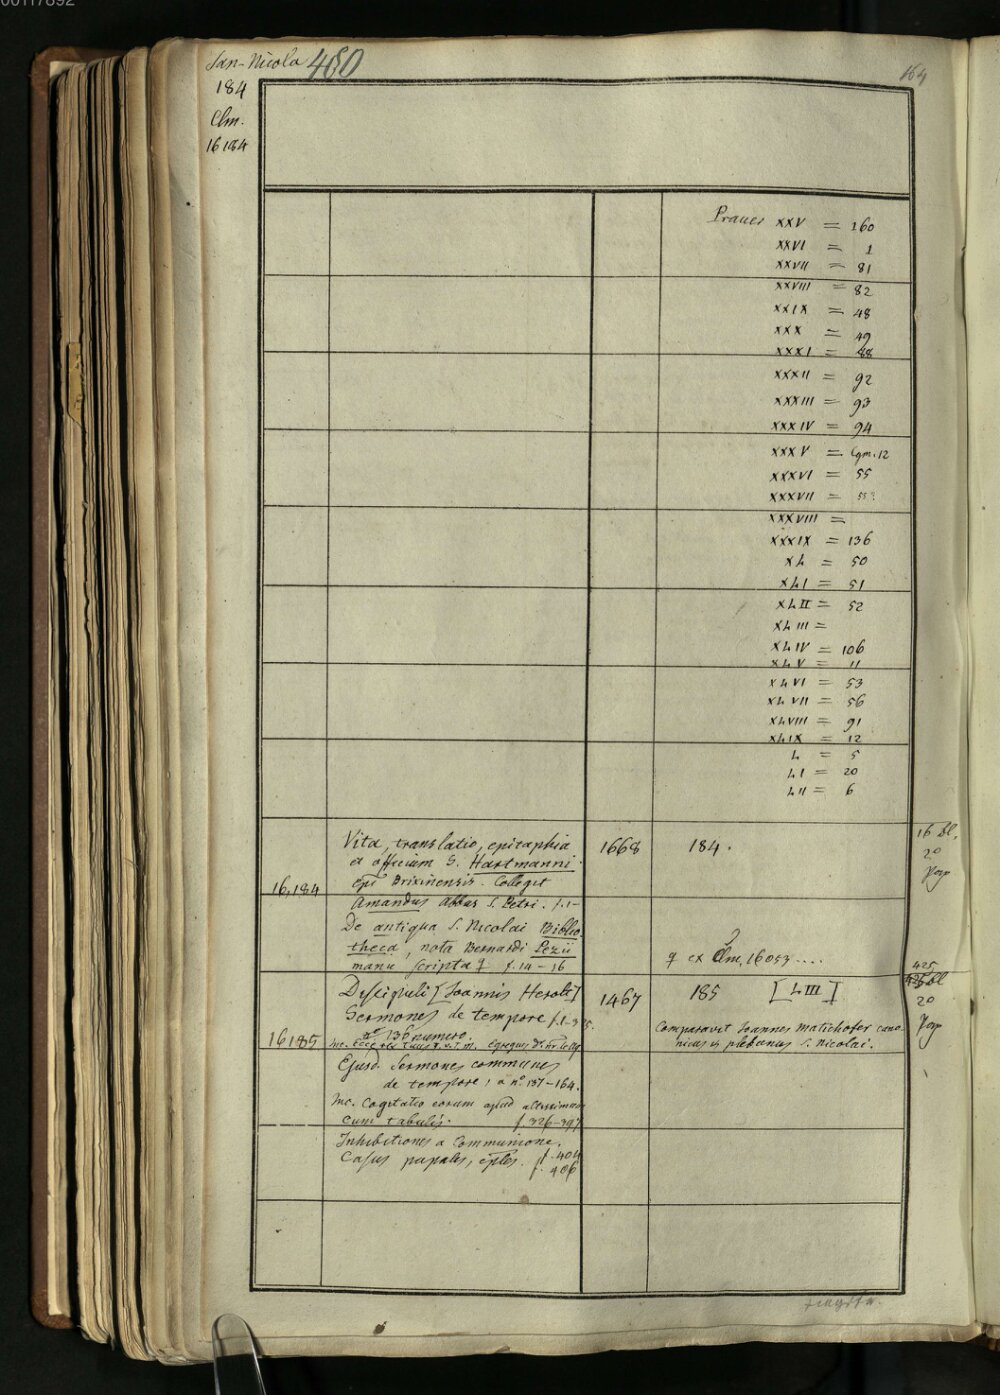 00117892
San-Nicola 480
164
184
Clm.
16184
XXV = 160
XXVI = 1
XXVII = 81
XXVIII = 82
XXIX = 48
XXX = 49
XXXI = 88
XXXII = 92
XXXIII = 93
XXXIV = 94
XXXV = Cgm. 12
XXXVI = 55
XXXVII = 55?
XXXVIII =
XXXIX = 136
XL = 50
XLI = 51
XLII = 52
XLIII =
XLIV = 106
XLV = 11
XLVI = 53
XLVII = 56
XLVIII = 91
XLIX = 12
L = 5
LI = 20
LII = 6
Vita, translatio, epitaphia 1668 184. 16 Bl.
et officium S. Hartmanni 2°
16,184 epi Brixinensis. Collegit Pap
Amandus Abbas S. Petri. f. 1-
De antiqua S. Nicolai Biblio
theca, nota Bernardi Pezii
manu scripta f. 14-16 ex Clm. 16053 .... ?
425
Discipuli [Joannis Herolt] 1467 185 [LIII] Bl
Sermones de tempore f. 1-325. 2°
n° 136 numero. Comparavit Joannes Matichofer cano- Pap
16185 Inc. Ecce rex tuus
nicus et plebanus S. Nicolai.
Ejusd. Sermones communes
de tempore, a n° 137-164.
Inc. Cogitatio eorum apud altissimum
cum tabulis. f. 326-397
Inhibitiones a Communione. f. 404
Casus papales, eples. f. 406